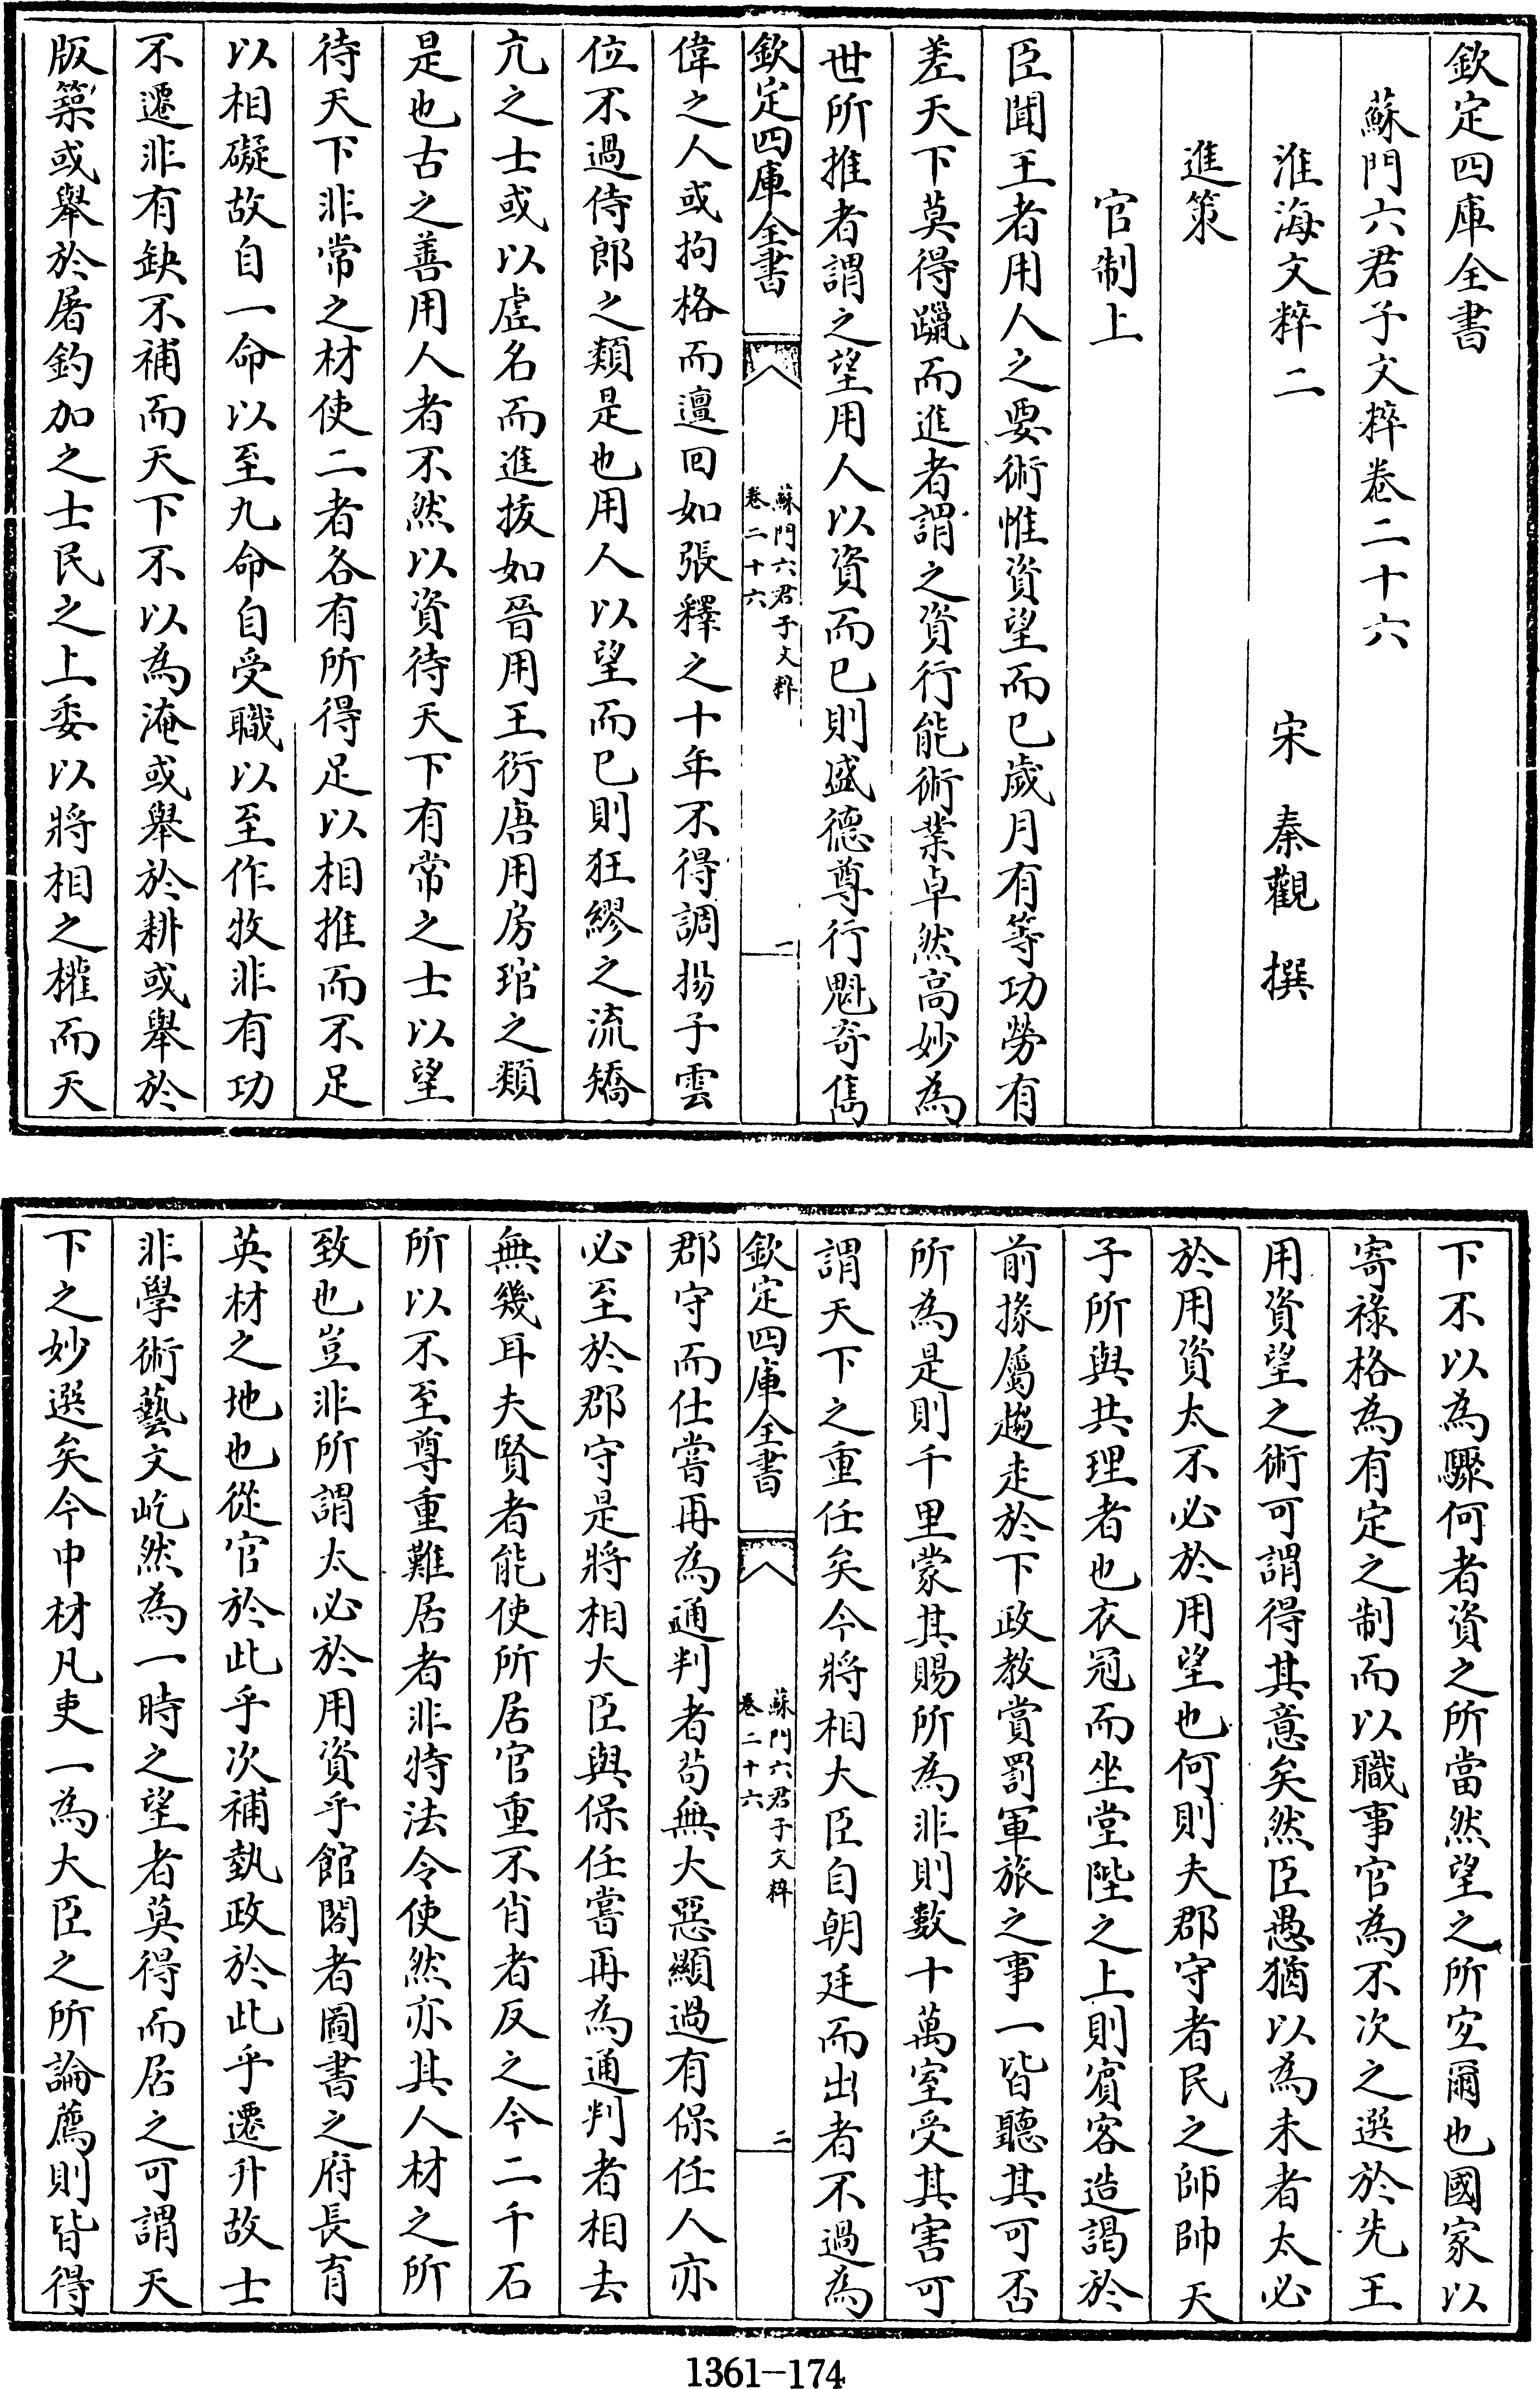 欽定四庫全書
蘇門六君子文粹卷二十六
淮海文粹二　宋　秦觀　撰
進策
官制上
臣聞王者用人之要術惟資望而已歲月有等功勞有
差天下莫得躐而進者謂之資行能術業卓然高妙為
世所推者謂之望用人以資而已則盛德尊行魁奇雋
欽定四庫全書
蘇門六君子文粹
卷二十六
一
偉之人或拘格而邅回如張釋之十年不得調揚子雲
位不過侍郎之類是也用人以望而已則狂繆之流矯
亢之士或以虛名而進拔如晉用王衍唐用房琯之類
是也古之善用人者不然以資待天下有常之士以望
待天下非常之材使二者各有所得足以相推而不足
以相礙故自一命以至九命自受職以至作牧非有功
不遷非有缺不補而天下不以為淹或舉於耕或舉於
版築或舉於屠釣加之士民之上委以將相之權而天
下不以為驟何者資之所當然望之所宜爾也國家以
寄祿格為有定之制而以職事官為不次之選於先王
用資望之術可謂得其意矣然臣愚猶以為未者太必
於用資太不必於用望也何則夫郡守者民之師帥天
子所與共理者也衣冠而坐堂陛之上則賓客造謁於
前掾屬趨走於下政教賞罰軍旅之事一皆聽其可否
所為是則千里蒙其賜所為非則數十萬室受其害可
謂天下之重任矣今將相大臣自朝廷而出者不過為
欽定四庫全書
蘇門六君子文粹
卷二十六
二
郡守而仕嘗再為通判者苟無大惡顯過有保任人亦
必至於郡守是將相大臣與保任嘗再為通判者相去
無幾耳夫賢者能使所居官重不肖者反之今二千石
所以不至尊重難居者非特法令使然亦其人材之所
致也豈非所謂太必於用資乎館閣者圖書之府長育
英材之地也從官於此乎次補執政於此乎遷升故士
非學術藝文屹然為一時之望者莫得而居之可謂天
下之妙選矣今中材凡吏一為大臣之所論薦則皆得
1361-174